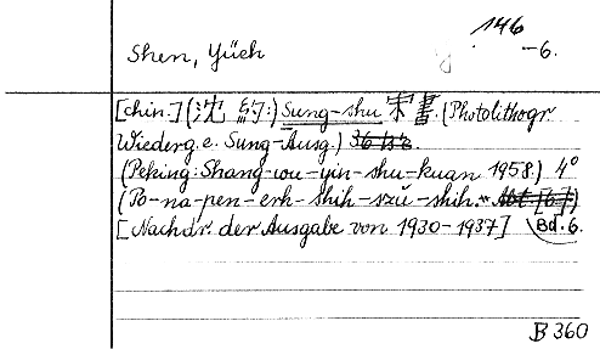 146
-6.
Shen, Yüeh
[chin.] (沈約:) Sung-shu 宋書. (Photolithogr.
Wiederg. e. Sung-Ausg.)
(Peking: Shang-wu-yin-shu-kuan 1958.) 4°
(Po-na-pen-erh-shih-szŭ-shih. Abt. [6])
[Nachdr. der Ausgabe von 1930-1937] Bd. 6.
B 360